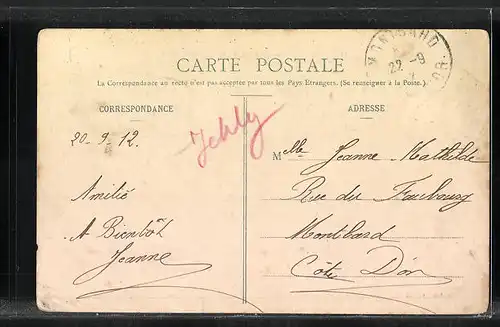 MONTBARD
22 - 9
CARTE POSTALE
La Correspondance au recto n'est pas acceptée par tous les Pays Étrangers. (Se renseigner à la Poste).
CORRESPONDANCE
ADRESSE
20-9-12.
Amitié
A Bientôt
Jeanne
Melle Jeanne Mathilde
Rue du Faubourg
Montbard
Côte D'or